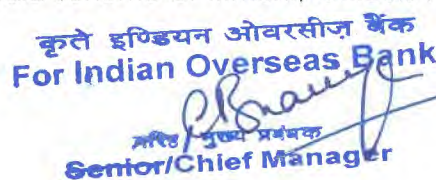 कृते इण्डियन ओवरसीज़ बैंक
For Indian Overseas Bank
मुख्य प्रबंधक
Senior/Chief Manager